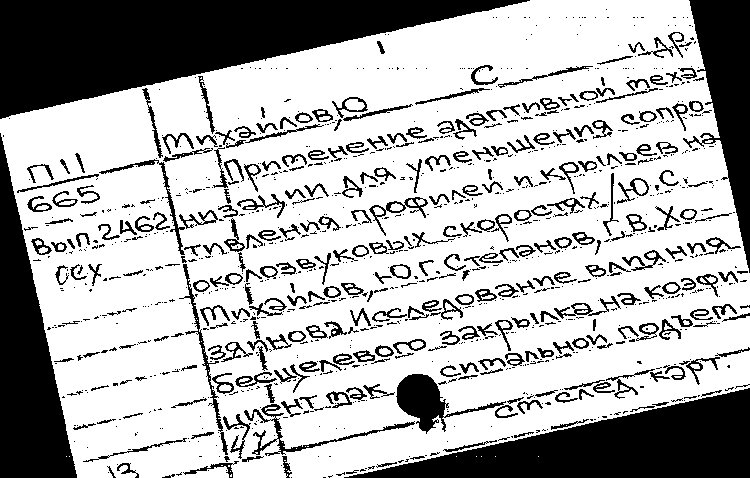 Михайлов, Ю С и др.
П 11 Применение адаптивной меха-
665 низации для уменьшения сопро-
Вып. 2462 тивления профилей и крыльев на
осх околозвуковых скоростях / Ю.С.
Михайлов, Ю.Г. Степанов, Г.В. Хо-
зяинова. Исследование влияния
бесщелевого закрылка на коэфи-
циент мак симальной подъем-
47 см. след. карт.
13